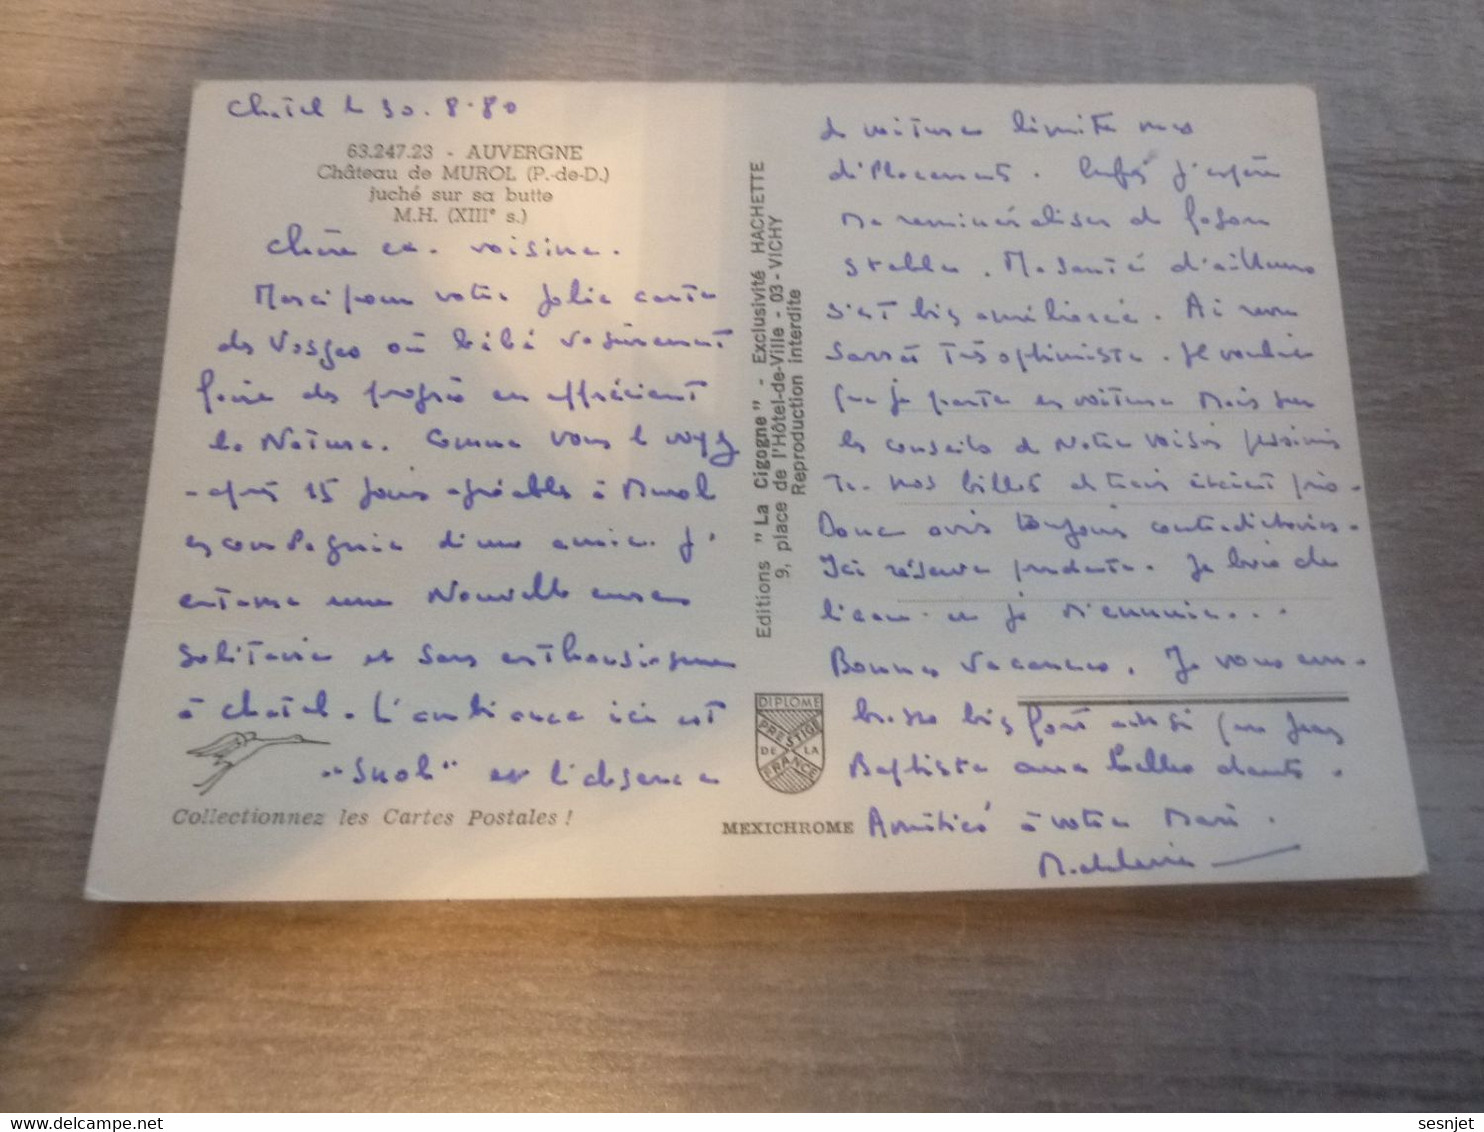 Châtel le 30.8.80
63.247.23 - AUVERGNE
Château de MUROL (P.-de-D.)
juché sur sa butte
M.H. (XIIIe s.)
Chère ex. voisine.
Merci pour votre jolie carte
des Vosges où bébé va sûrement
faire des progrès en appréciant
la Nature. Comme vous le voyez
- après 15 jours agréables à Murol
en compagnie d'une amie. J'
entame une Nouvelle cure
solitaire et sans enthousiasme
à Châtel. L'ambiance ici est
"Snob" et l'absence
Collectionnez les Cartes Postales !
Editions "La Cigogne" - Exclusivité HACHETTE
9, place de l'Hôtel-de-Ville - 03-VICHY
Reproduction interdite
DIPLOME
PRESTIGE
DE LA
FRANCE
MEXICHROME
de voitures limite nos
déplacements. Enfin j'espère
me reminéraliser de façon
stable. Ma santé d'ailleurs
s'est bien améliorée. Ai revu
très optimiste. Je voulais
que je parte en voiture mais sur
les conseils de Notre voisin
nos billets de train étaient
Donc avis toujours contradictoires.
Ici réserve prudente. Je bois de
l'eau et je m'ennuie...
Bonnes Vacances. Je vous em-
brasse bien fort ainsi que Jean
Baptiste aux belles dents.
Amitiés à votre Mari.
Madeleine